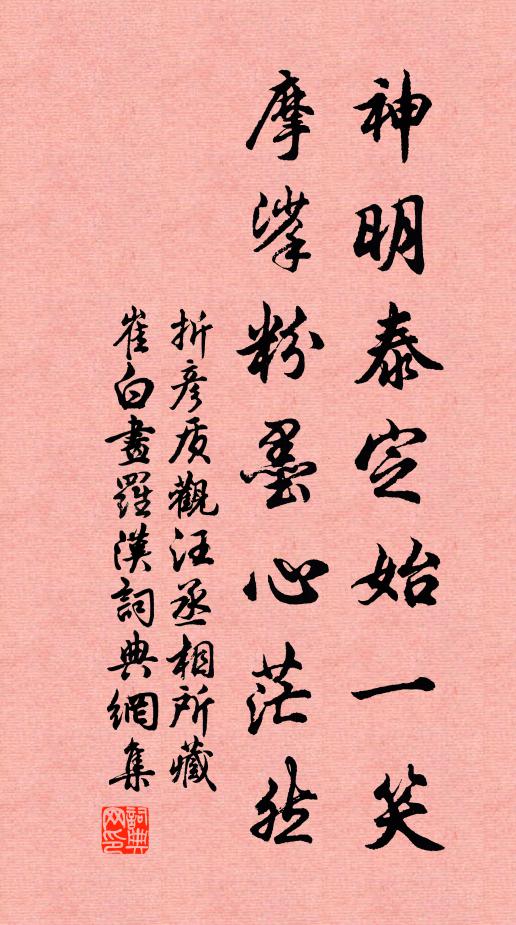 神明泰定始一笑
摩挲粉墨心茫然
折彦质觀汪丞相所藏
崔白畫羅漢詞典網集
詞典网印